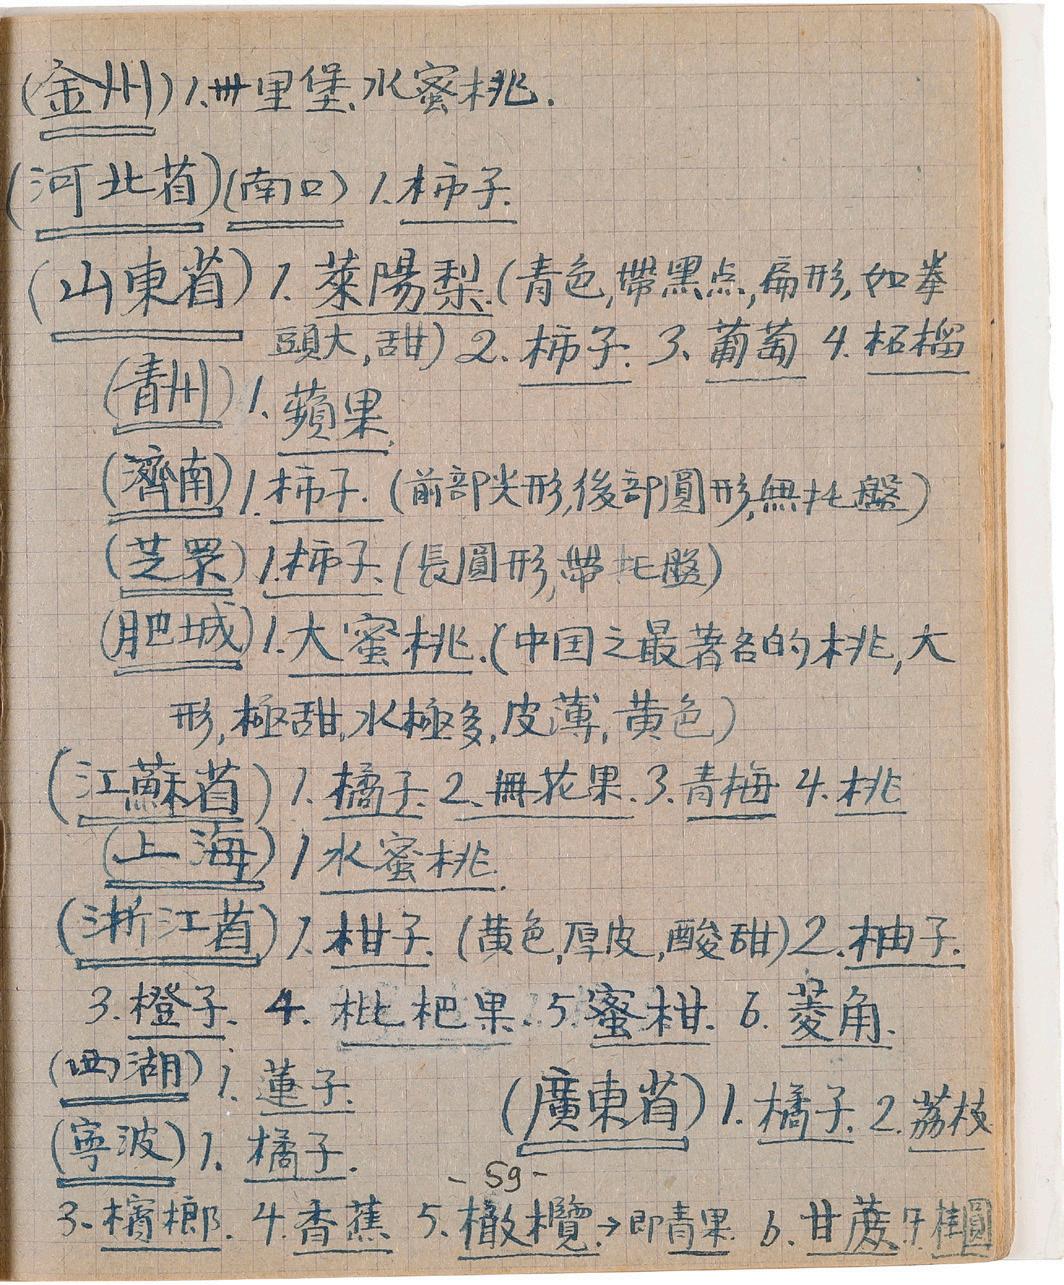 (金州) 1.卅里堡、水蜜桃.
(河北省)(南口) 1.柿子.
(山東省) 1.萊陽梨.(青色,帶黑点,扁形,如拳
頭大,甜) 2.柿子. 3.葡萄 4.柘榴
(青州) 1.蘋果.
(濟南) 1.柿子. (前部尖形,後部圓形,無托盤)
(芝罘) 1.柿子. (長圓形,帶托盤)
(肥城) 1.大蜜桃.(中国之最著名的桃,大
形,極甜,水極多,皮薄,黄色)
(江蘇省) 1.橘子. 2.無花果. 3.青梅 4.桃
(上海) 1水蜜桃.
(浙江省) 1.柑子. (黄色,厚皮,酸甜) 2.柚子.
3.橙子. 4.枇杷果. 5.蜜柑. 6.菱角.
(西湖) 1.蓮子.
(寧波) 1.橘子.
(廣東省) 1.橘子. 2.荔枝
3-檳榔. 4.香蕉 5.橄欖→即青果. 6.甘蔗 7.桂圓
-59-